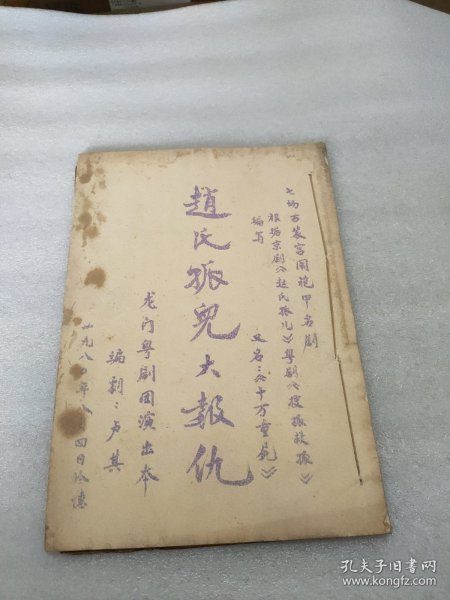 七场古装宫闱袍甲名剧
根据京剧《赵氏孤儿》粤剧《搜孤救孤》
编写
又名:《十万重冤》
趙氏孤兒大報仇
龙门粤剧团演出本
编剧:卢其
一九八〇年八月四日于
孔夫子旧书网
www.kongfz.com